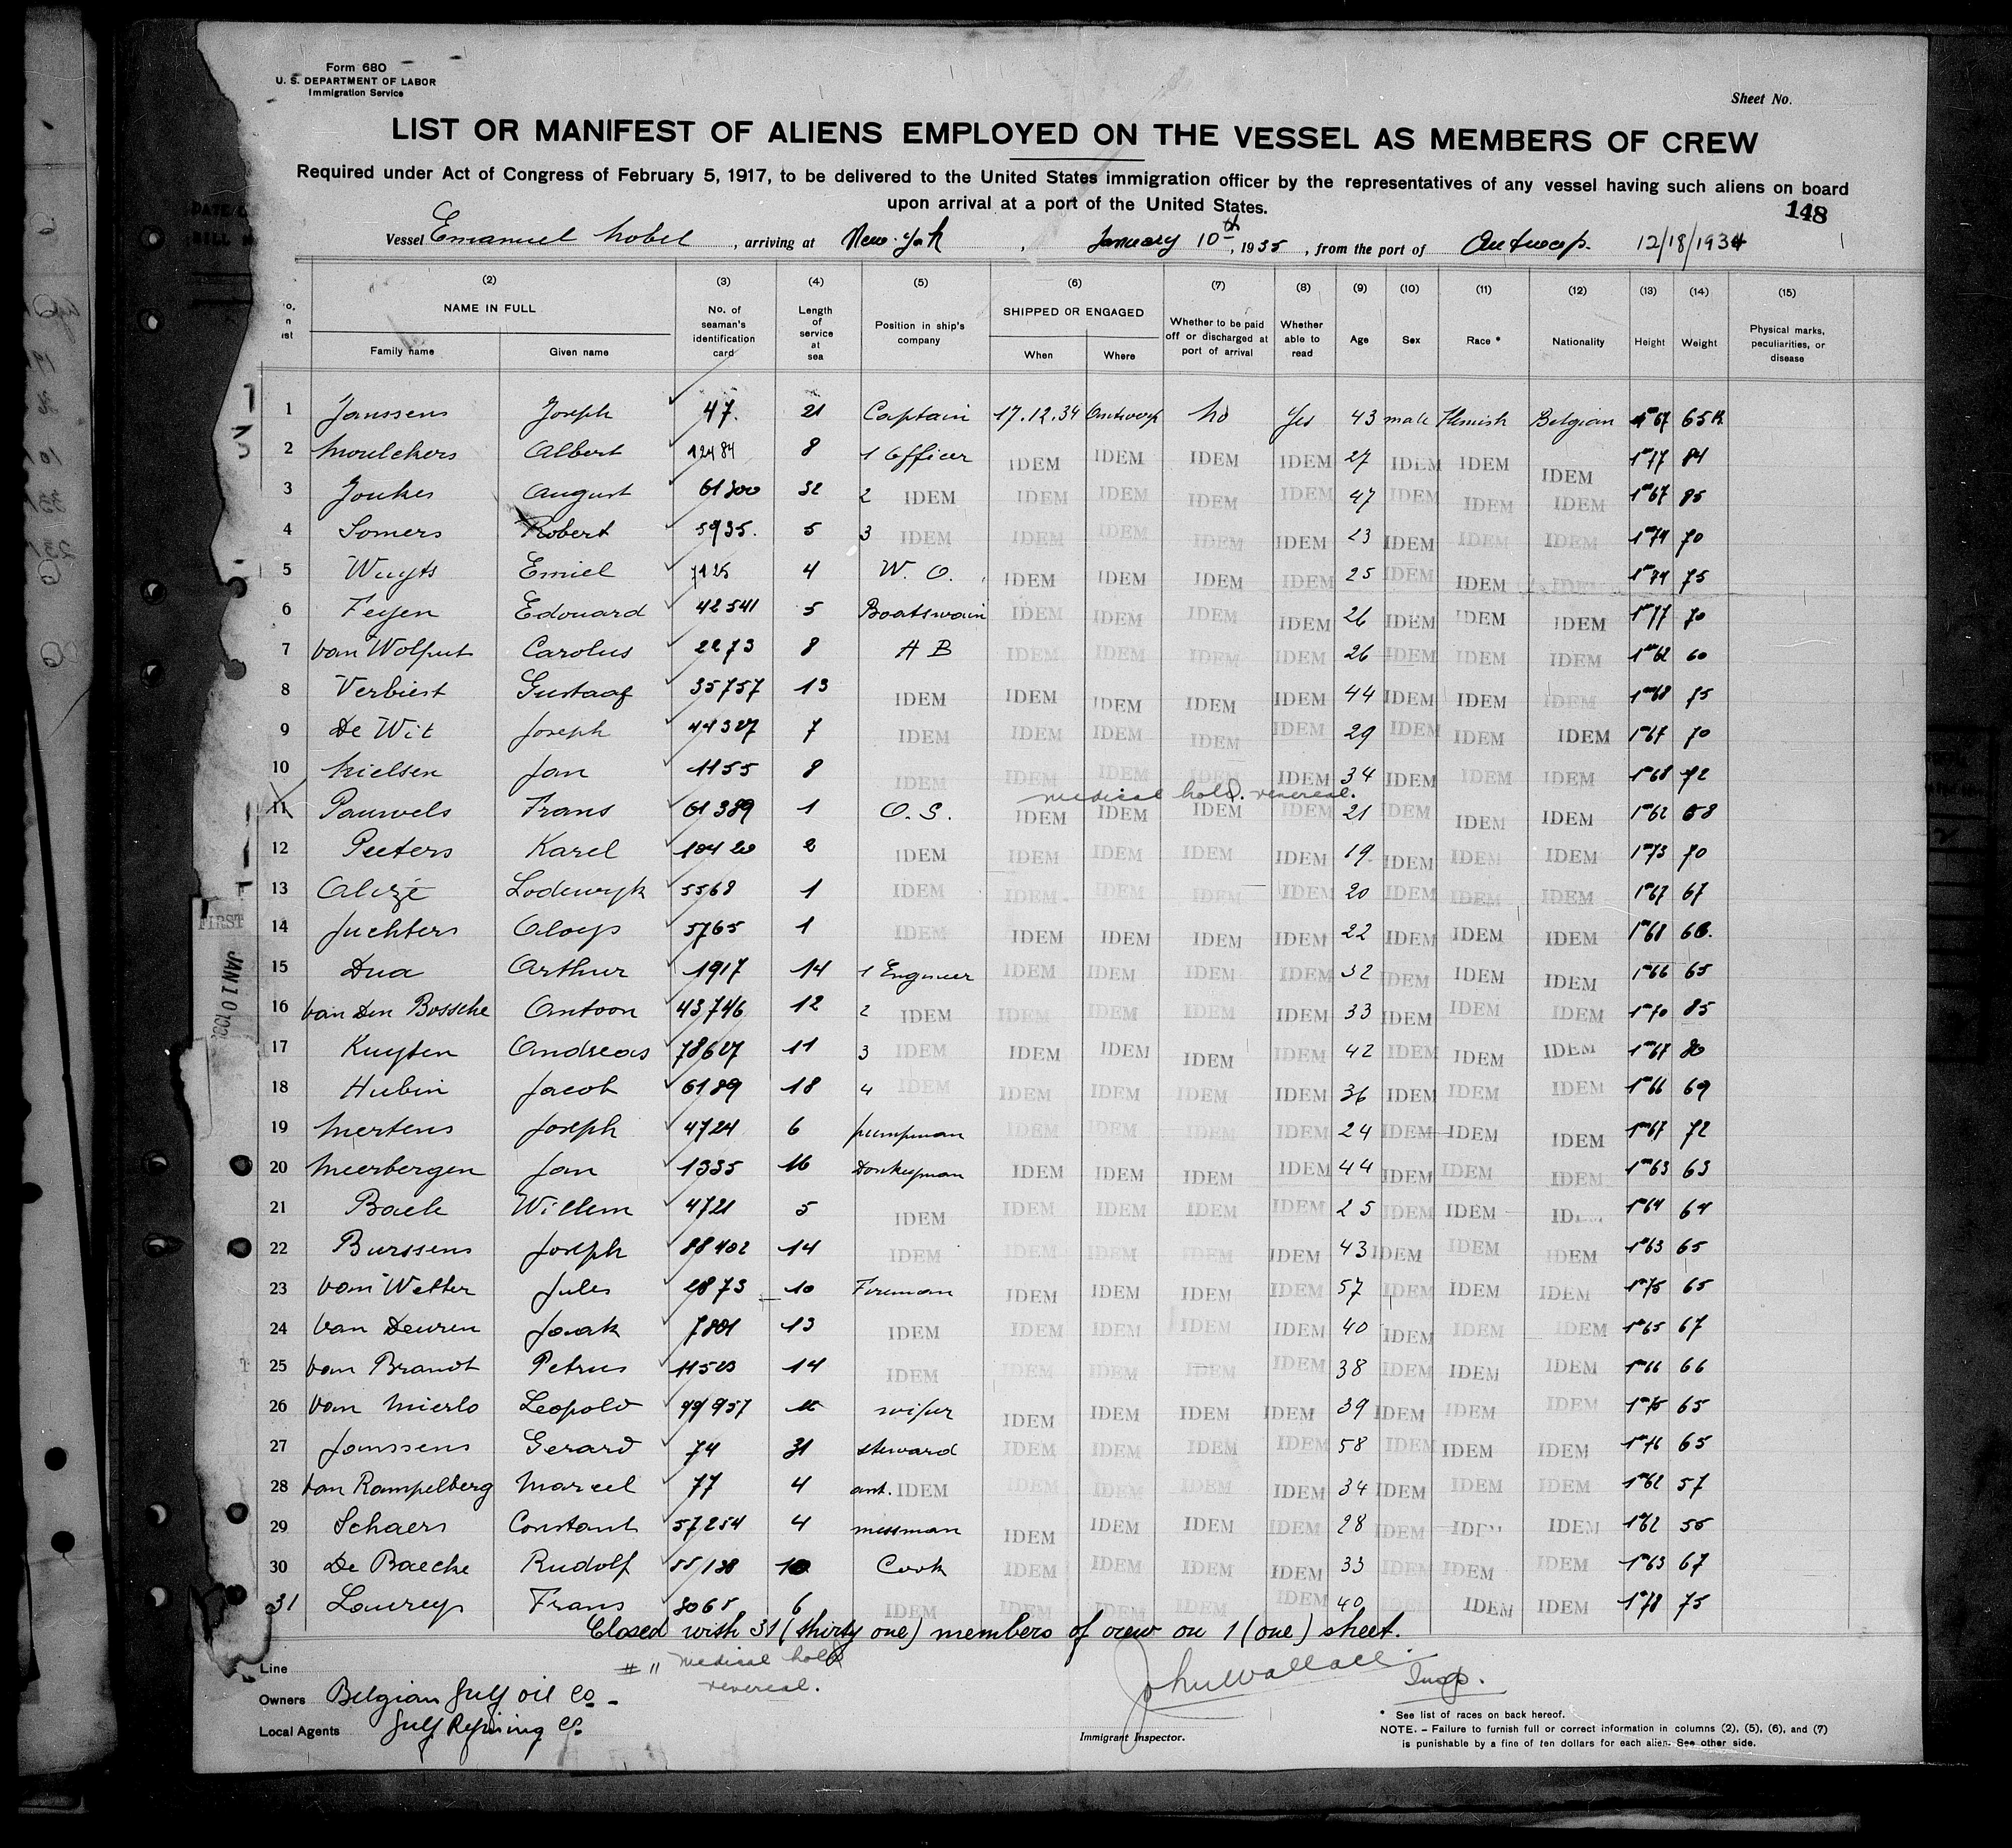 Form 680
U. S. DEPARTMENT OF LABOR
Immigration Service
Sheet No.
LIST OR MANIFEST OF ALIENS EMPLOYED ON THE VESSEL AS MEMBERS OF CREW
Required under Act of Congress of February 5, 1917, to be delivered to the United States immigration officer by the representatives of any vessel having such aliens on board
upon arrival at a port of the United States.
148
Vessel Emanuel Nobel, arriving at New-York, January 10th, 1935, from the port of Antwerp. 12/18/1934
(2) (3) (4) (5) (6) (7) (8) (9) (10) (11) (12) (13) (14) (15)
NAME IN FULL No. of seaman's identification card Length of service at sea Position in ship's company SHIPPED OR ENGAGED Whether to be paid off or discharged at port of arrival Whether able to read Age Sex Race * Nationality Height Weight Physical marks, peculiarities, or disease
Family name Given name When Where
1 Janssens Joseph 47. 21 Captain 17.12.34 Antwerp No Yes 43 male Flemish Belgian 1m67 65
2 Albert 12484 8 1 Officer IDEM IDEM IDEM IDEM 27 IDEM IDEM IDEM 1m77 84
3 August 61300 32 2 IDEM IDEM IDEM IDEM IDEM 47 IDEM IDEM IDEM 1m67 85
4 Somers Robert 5935. 5 3 IDEM IDEM IDEM IDEM IDEM 23 IDEM IDEM IDEM 1m79 70
5 Wuyts Emiel 7125 4 W. O. IDEM IDEM IDEM IDEM 25 IDEM IDEM IDEM 1m79 75
6 Feyen Edouard 42541 5 Boatswain IDEM IDEM IDEM IDEM 26 IDEM IDEM IDEM 1m77 70
7 van Wolput Carolus 2273 8 A B IDEM IDEM IDEM IDEM 26 IDEM IDEM IDEM 1m62 60
8 Verbiest Gustaaf 35757 13 IDEM IDEM IDEM IDEM IDEM 44 IDEM IDEM IDEM 1m68 75
9 De Wit Joseph 44327 7 IDEM IDEM IDEM IDEM IDEM 29 IDEM IDEM IDEM 1m67 70
10 Nielsen Jan 1155 8 IDEM IDEM IDEM IDEM IDEM 34 IDEM IDEM IDEM 1m68 72
medical hold. venereal.
11 Pauwels Frans 61389 1 O. S. IDEM IDEM IDEM IDEM 21 IDEM IDEM IDEM 1m62 68
12 Peeters Karel 10420 2 IDEM IDEM IDEM IDEM IDEM 19. IDEM IDEM IDEM 1m73 70
13 Alizé Lodewyk 5568 1 IDEM IDEM IDEM IDEM IDEM 20 IDEM IDEM IDEM 1m67 67
14 Juchters Aloys 5765 1 IDEM IDEM IDEM IDEM IDEM 22 IDEM IDEM IDEM 1m68 68.
15 Dua Arthur 1917 14 1 Engineer IDEM IDEM IDEM IDEM 32 IDEM IDEM IDEM 1m66 65
16 van Den Bossche Antoon 43746 12 2 IDEM IDEM IDEM IDEM IDEM 33 IDEM IDEM IDEM 1m70 85
17 Kuyten Andreas 78627 11 3 IDEM IDEM IDEM IDEM IDEM 42 IDEM IDEM IDEM 1m67 80
18 Hubin Jacob 6189 18 4 IDEM IDEM IDEM IDEM IDEM 36 IDEM IDEM IDEM 1m66 69
19 Mertens Joseph 4724 6 pumpman IDEM IDEM IDEM IDEM 24 IDEM IDEM IDEM 1m67 72
20 Meerbergen Jan 1335 16 Donkeyman IDEM IDEM IDEM IDEM 44 IDEM IDEM IDEM 1m63 63
21 Willem 4721 5 IDEM IDEM IDEM IDEM IDEM 25 IDEM IDEM 1m64 64
22 Burssens Joseph 88402 14 IDEM IDEM IDEM IDEM IDEM 43 IDEM IDEM IDEM 1m63 65
23 van Wetter Jules 2873 10 Fireman IDEM IDEM IDEM IDEM 57 IDEM IDEM IDEM 1m75 65
24 van Deuren 7801 13 IDEM IDEM IDEM IDEM IDEM 40 IDEM IDEM IDEM 1m65 67
25 van Brandt Petrus 11503 14 IDEM IDEM IDEM IDEM IDEM 38 IDEM IDEM IDEM 1m66 66
26 van Mierlo Leopold 99957 wiper IDEM IDEM IDEM IDEM 39 IDEM IDEM IDEM 1m75 65
27 Janssens Gerard 74 31 steward IDEM IDEM IDEM IDEM 58 IDEM IDEM IDEM 1m76 65
28 van Rampelberg Marcel 77 4 IDEM IDEM IDEM IDEM IDEM 34 IDEM IDEM IDEM 1m62 57
29 Schaers Constant 57254 4 messman IDEM IDEM IDEM IDEM 28 IDEM IDEM IDEM 1m62 55
30 De Baecke Rudolf 55138 10 Cook IDEM IDEM IDEM IDEM 33 IDEM IDEM IDEM 1m63 67
31 Laureys Frans 3065 6 IDEM IDEM IDEM IDEM IDEM 40 IDEM IDEM IDEM 1m78 75
Closed with 31 (thirty one) members of crew on 1 (one) sheet.
FIRST
JAN 10
Line
# 11 medical hold
venereal.
John Wallace Insp.
Owners Belgian Gulf oil Co.
Local Agents Gulf Refining Co.
Immigrant Inspector.
* See list of races on back hereof.
NOTE. – Failure to furnish full or correct information in columns (2), (5), (6), and (7)
is punishable by a fine of ten dollars for each alien. See other side.